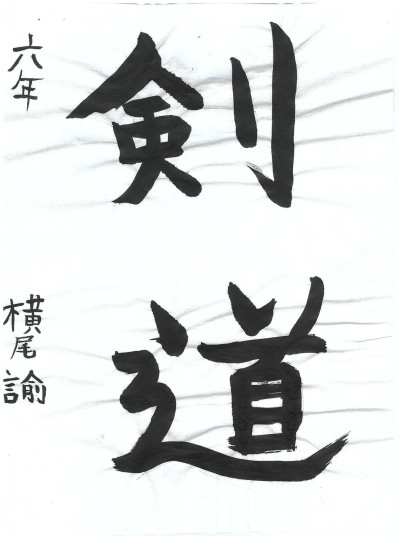 剣道
六年
横尾諭